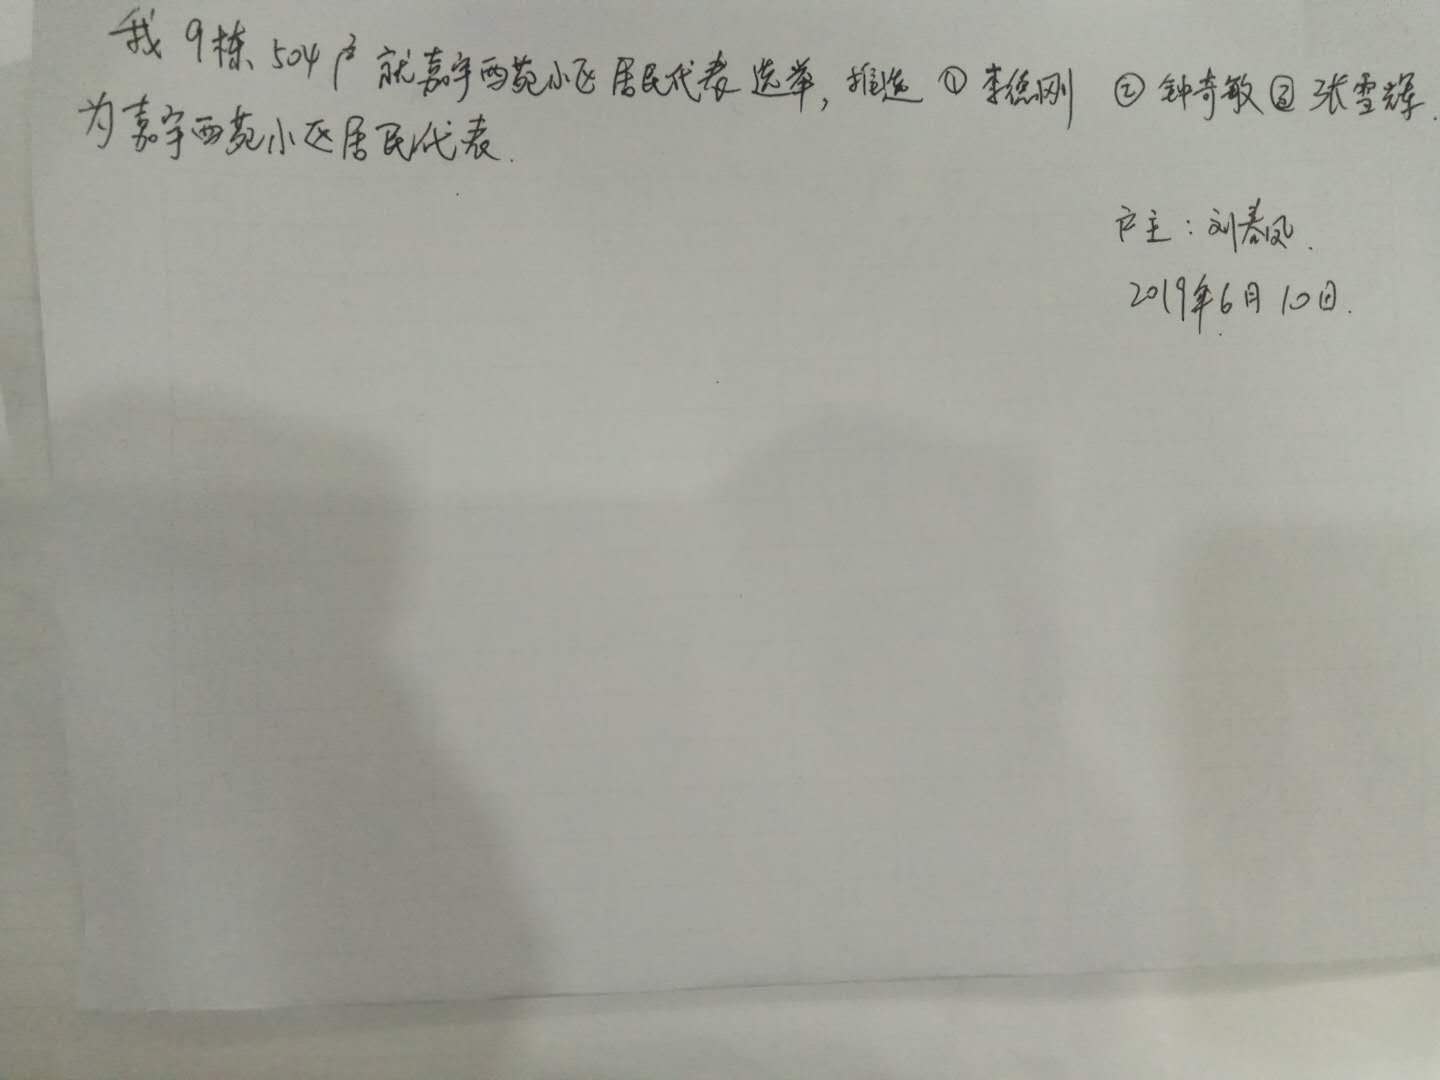 我9栋504户就嘉宇西苑小区居民代表选举，推选①李德刚 ②钟奇敏③张雪辉.
为嘉宇西苑小区居民代表.
户主：刘春凤.
2019年6月10日.